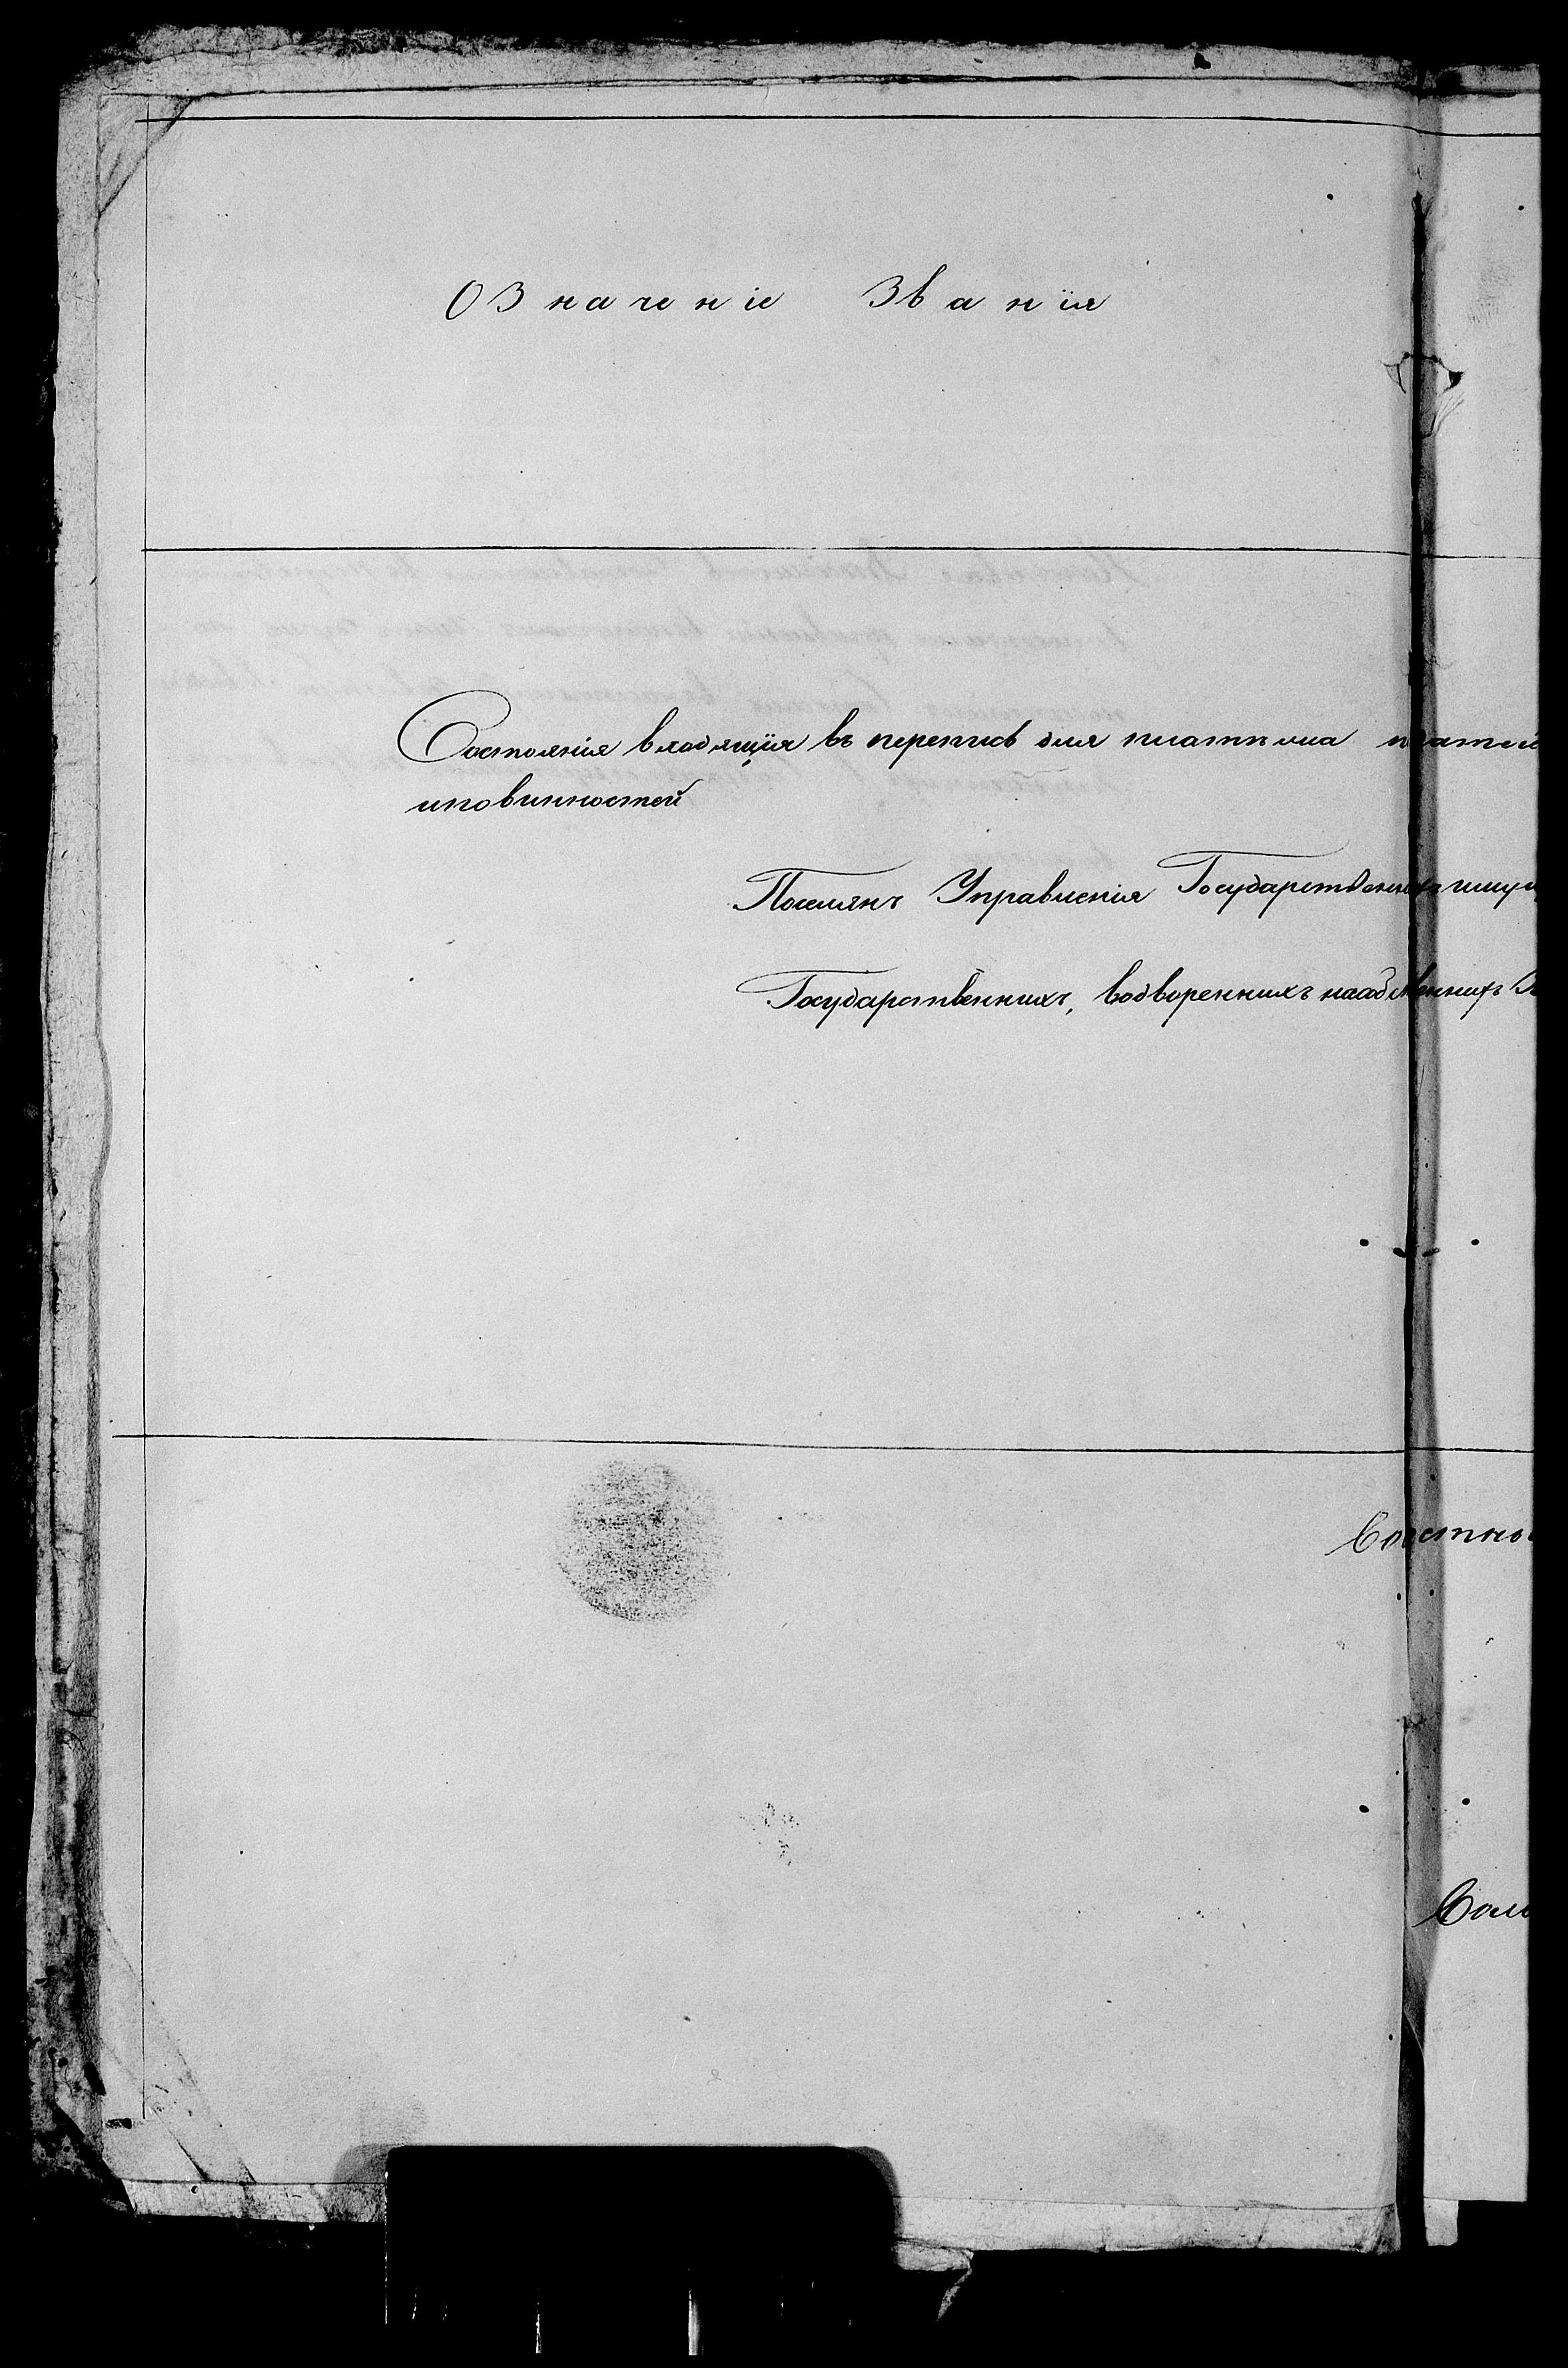 Означеніе Званія
Состоянія входящія въ перепись для платежа
иповинностей
Поселянъ Управленія Государственныхъ имущ
Государственныхъ, водворенныхъ насобственныхъ